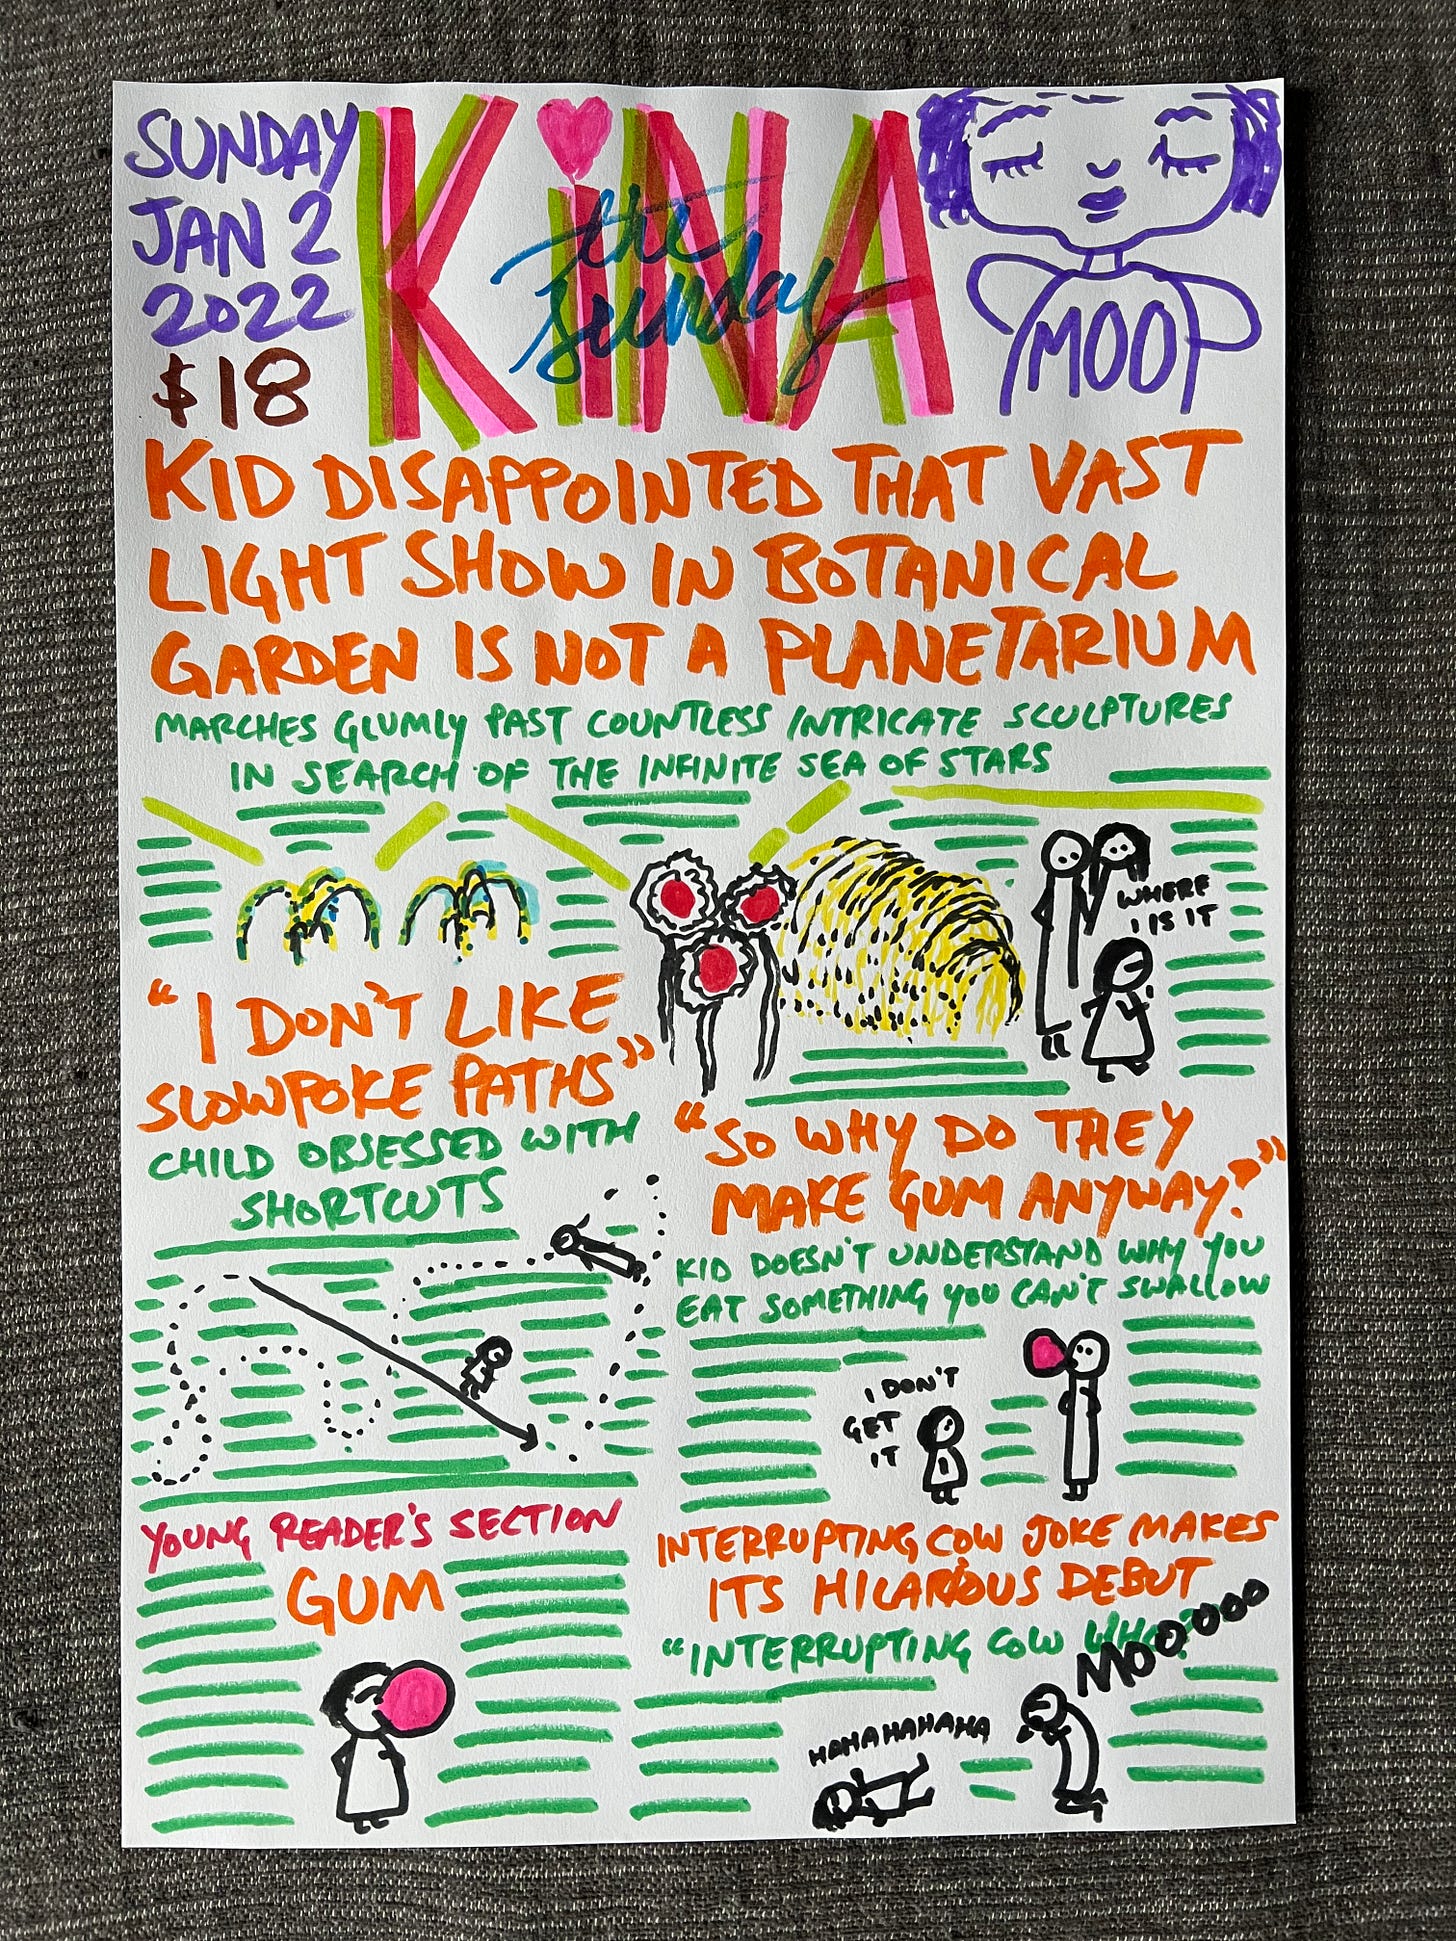 SUNDAY
JAN 2
2022
$18
KiNA
the
sunday
MOO
KID DISAPPOINTED THAT VAST
LIGHT SHOW IN BOTANICAL
GARDEN IS NOT A PLANETARIUM
MARCHES GLUMLY PAST COUNTLESS INTRICATE SCULPTURES
IN SEARCH OF THE INFINITE SEA OF STARS
WHERE
IS IT
"I DON'T LIKE
SLOWPOKE PATHS"
CHILD OBSESSED WITH
SHORTCUTS
"SO WHY DO THEY
MAKE GUM ANYWAY?"
KID DOESN'T UNDERSTAND WHY YOU
EAT SOMETHING YOU CAN'T SWALLOW
I DON'T
GET
IT
YOUNG READER'S SECTION
GUM
INTERRUPTING COW JOKE MAKES
ITS HILARIOUS DEBUT
"INTERRUPTING COW WHO?"
MOOOOOO
HAHAHAHAHA